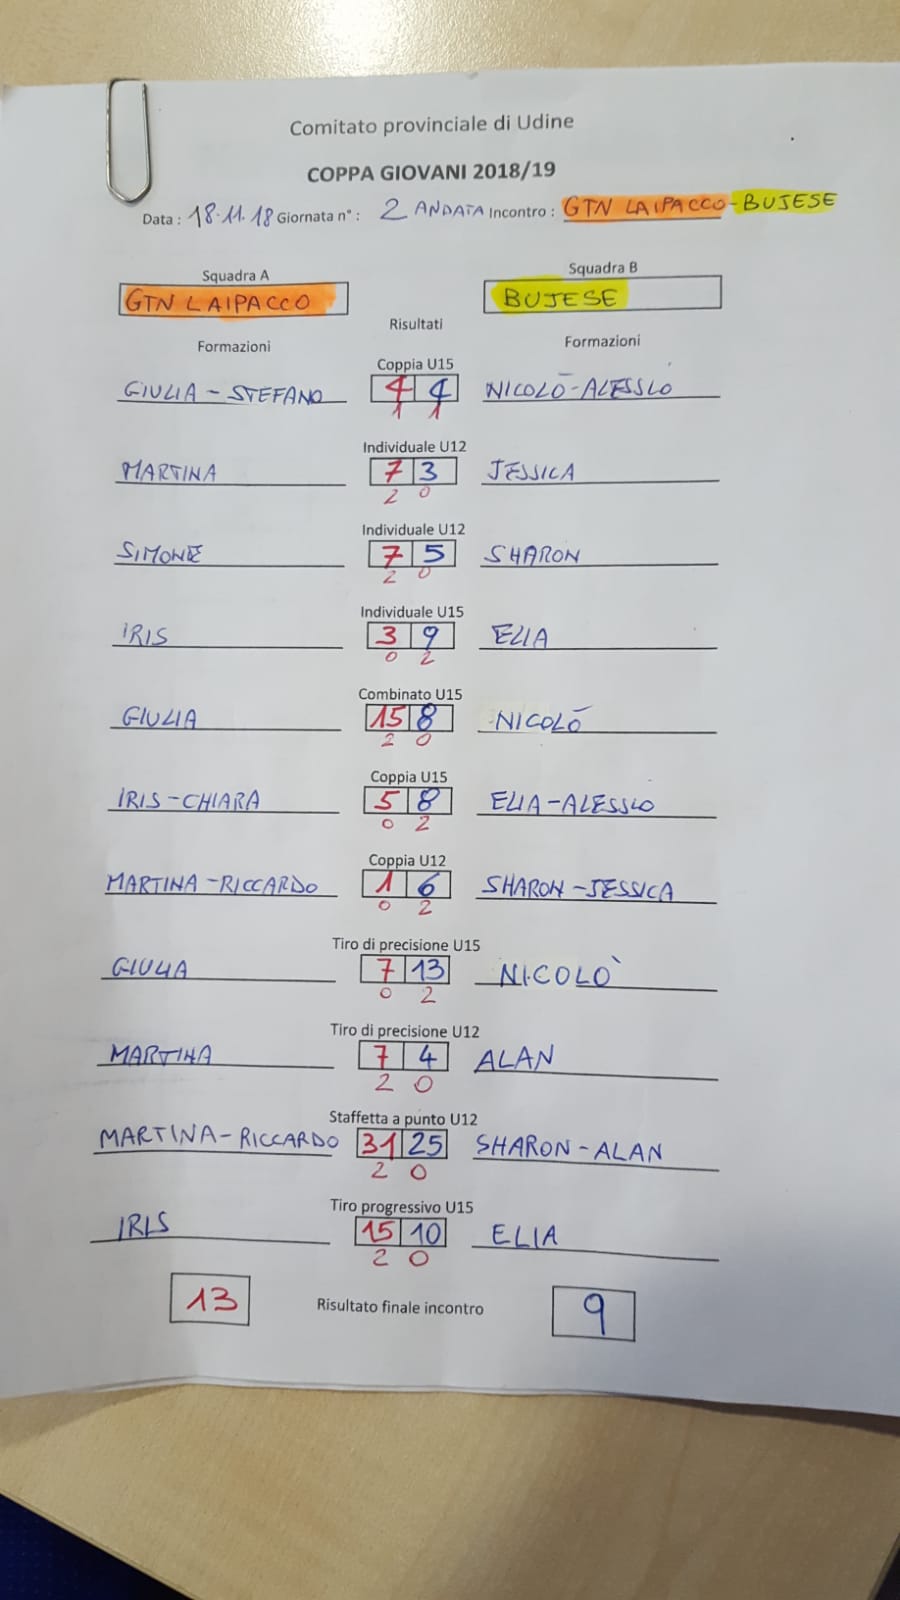 Comitato provinciale di Udine
COPPA GIOVANI 2018/19
Data : 18.11.18 Giornata n° : 2 ANDATA Incontro : GTN LAIPACCO-BUJESE
Squadra A Squadra B
GTN LAIPACCO BUJESE
Risultati
Formazioni Formazioni
Coppia U15
GIULIA - STEFANO 4 4 NICOLÒ-ALESSIO
1 1
Individuale U12
MARTINA 7 3 JESSICA
2 0
Individuale U12
SIMONE 7 5 SHARON
2 0
Individuale U15
IRIS 3 9 ELIA
0 2
Combinato U15
GIULIA 15 8 NICOLÒ
2 0
Coppia U15
IRIS-CHIARA 5 8 ELIA-ALESSIO
0 2
Coppia U12
MARTINA-RICCARDO 1 6 SHARON-JESSICA
0 2
Tiro di precisione U15
GIULIA 7 13 NICOLÒ
0 2
Tiro di precisione U12
MARTINA 7 4 ALAN
2 0
Staffetta a punto U12
MARTINA-RICCARDO 31 25 SHARON-ALAN
2 0
Tiro progressivo U15
IRIS 15 10 ELIA
2 0
13 Risultato finale incontro 9